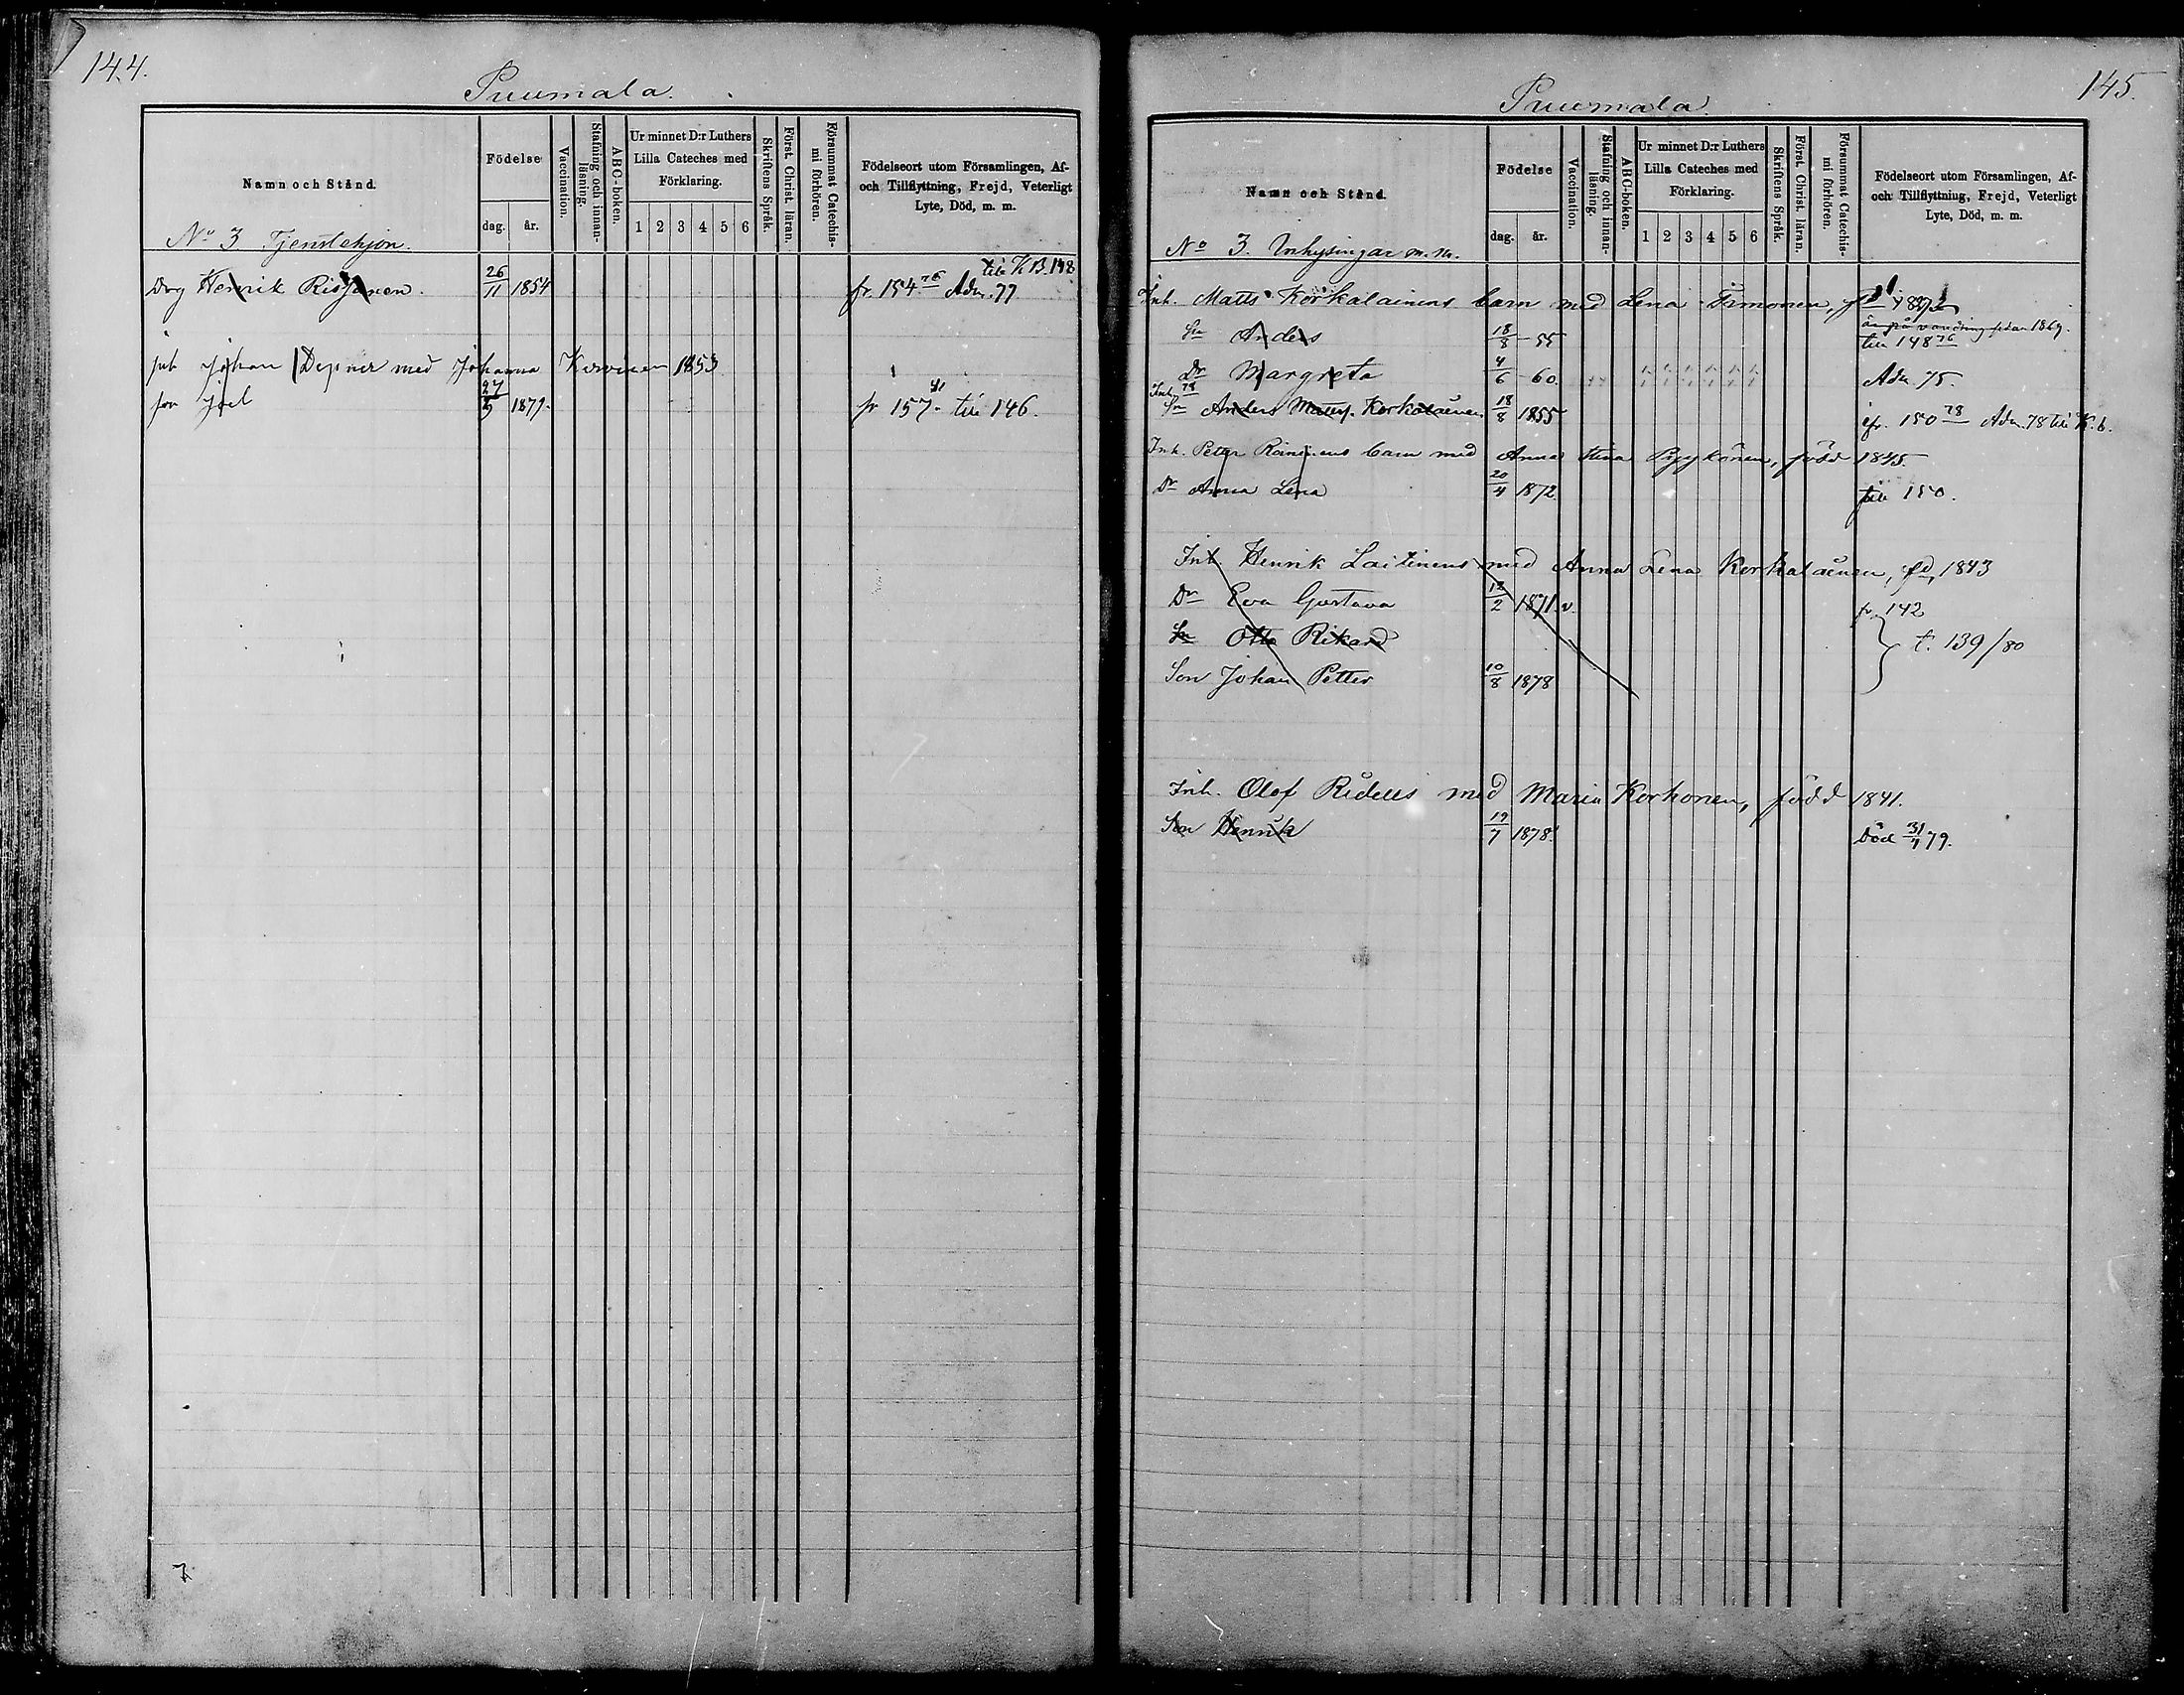 144.
Puumala.
Namn och Stånd.
Födelse
dag. år.
Vaccination.
Stafning och innanläsning.
ABC-boken.
Ur minnet D:r Luthers Lilla Cateches med Förklaring.
1 2 3 4 5 6
Skriftens Språk.
Först. Christ. läran.
Försummat Catechismi förhören.
Födelseort utom Församlingen, Af-
och Tillflyttning, Frejd, Veterligt
Lyte, Död, m. m.
No 3 Tjenstehjon.
till K.B. 148
Drg Henrik 26/11 1854 fr. 154 76 Adm. 77
Inh Johan Depner med Johanna 1853
son Joel 27/5 1879. fr 157 till 146.
145.
Puumala.
Namn och Stånd.
Födelse
dag. år.
Vaccination.
Stafning och innanläsning.
ABC-boken.
Ur minnet D:r Luthers Lilla Cateches med Förklaring.
1 2 3 4 5 6
Skriftens Språk.
Först. Christ. läran.
Försummat Catechismi förhören.
Födelseort utom Församlingen, Af-
och Tillflyttning, Frejd, Veterligt
Lyte, Död, m. m.
No 3. Inhysingar m.m.
Inh. Matts Korkalainens barn med Lena Timonen,
är på vandring sedan 1869.
Sn Anders 18/8 - 55 till 148 76
Dr Margreta 4/6 - 60. Adm 75.
Inh 78
Sn Anders Matts. Korkalainen 18/8 1855 fr. 150 78 Adm. 78 till K.b.
Inh. Petter barn med Anna Stina Pyykönen, född 1845.
Dr Anna Lena 20/4 1872 till 150.
Inh. Henrik Laitinens med Anna Lena Korkalainen, fd 1843
Dr Eva Gustava 12/2 1871 v fr. 142
Sn Otto Rikard t. 139/80
Son Johan Petter 10/8 1878
Inh. Olof Ridells med Maria Korhonen, född 1841.
Son Henrik 19/7 1878. Död 79.